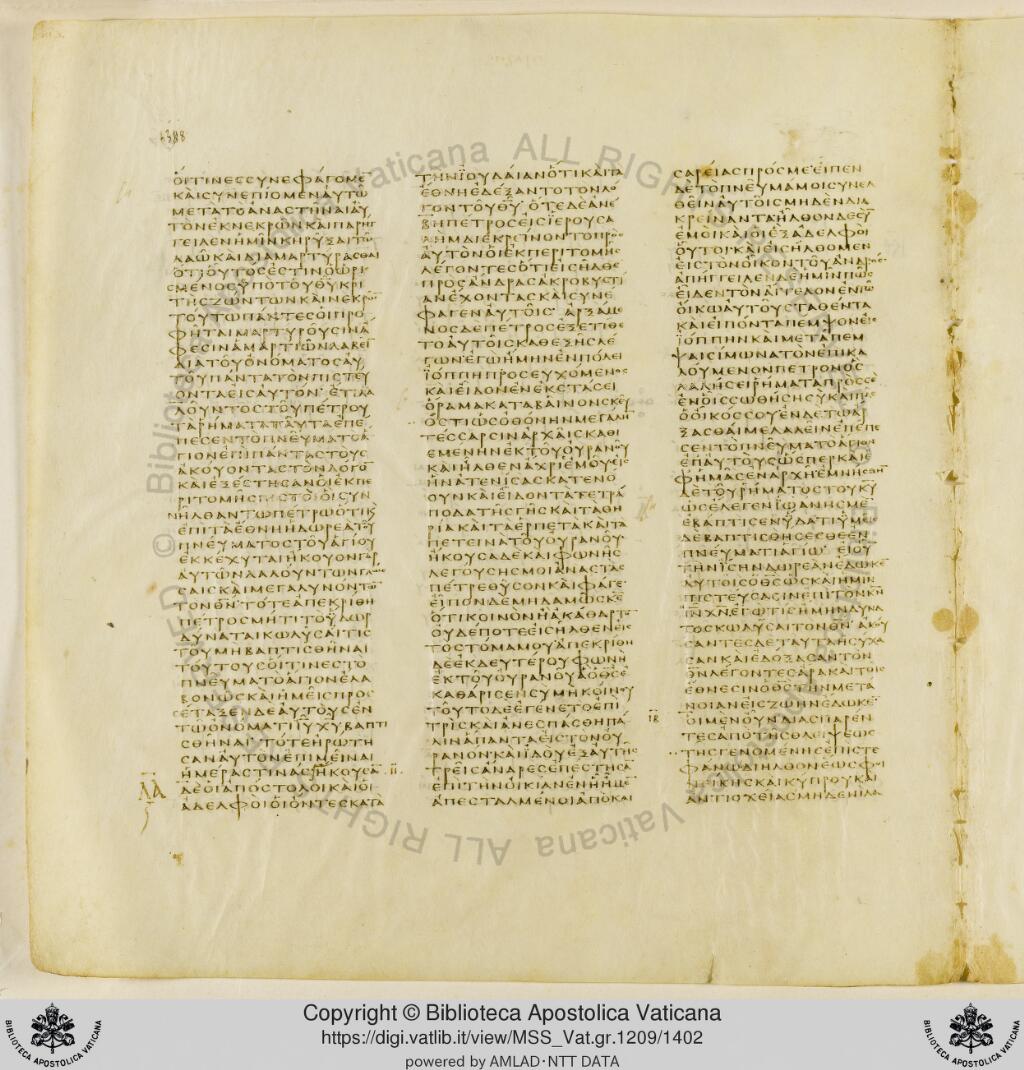 1388
ΟΙΤΙΝΕΣΣΥΝΕΦΑΓΟΜΕ
ΚΑΙΣΥΝΕΠΙΟΜΕΝΑΥΤΩ
ΜΕΤΑΤΟΑΝΑΣΤΗΝΑΙΑΥ
ΤΟΝΕΚΝΕΚΡΩΝΚΑΙΠΑΡΗΓ
ΓΕΙΛΕΝΗΜΙΝΚΗΡΥΞΑΙΤΩ
ΛΑΩΚΑΙΔΙΑΜΑΡΤΥΡΑΣΘΑΙ
ΟΤΙΟΥΤΟΣΕΣΤΙΝΟΩΡΙ
ΣΜΕΝΟΣΥΠΟΤΟΥΘΥΚΡΙ
ΤΗΣΖΩΝΤΩΝΚΑΙΝΕΚΡΩ
ΤΟΥΤΩΠΑΝΤΕΣΟΙΠΡΟ
ΦΗΤΑΙΜΑΡΤΥΡΟΥΣΙΝΑ
ΦΕΣΙΝΑΜΑΡΤΙΩΝΛΑΒΕΙ
ΔΙΑΤΟΥΟΝΟΜΑΤΟΣΑΥ
ΤΟΥΠΑΝΤΑΤΟΝΠΙΣΤΕΥ
ΟΝΤΑΕΙΣΑΥΤΟΝ· ΕΤΙΛΑ
ΛΟΥΝΤΟΣΤΟΥΠΕΤΡΟΥ
ΤΑΡΗΜΑΤΑΤΑΥΤΑΕΠΕ
ΠΕΣΕΝΤΟΠΝΕΥΜΑΤΟΑ
ΓΙΟΝΕΠΙΠΑΝΤΑΣΤΟΥΣ
ΑΚΟΥΟΝΤΑΣΤΟΝΛΟΓΟ
ΚΑΙΕΞΕΣΤΗΣΑΝΟΙΕΚΠΕ
ΡΙΤΟΜΗΣΠΙΣΤΟΙΟΙΣΥΝ
ΗΛΘΑΝΤΩΠΕΤΡΩΟΤΙΚ
ΕΠΙΤΑΕΘΝΗΗΔΩΡΕΑΤΟΥ
ΠΝΕΥΜΑΤΟΣΤΟΥΑΓΙΟΥ
ΕΚΚΕΧΥΤΑΙΗΚΟΥΟΝΓΑΡ
ΑΥΤΩΝΛΑΛΟΥΝΤΩΝΓΛΩΣ
ΣΑΙΣΚΑΙΜΕΓΑΛΥΝΟΝΤΩ
ΤΟΝΘΝ· ΤΟΤΕΑΠΕΚΡΙΘΗ
ΠΕΤΡΟΣΜΗΤΙΤΟΥΔΩΡ
ΔΥΝΑΤΑΙΚΩΛΥΣΑΙΤΙΣ
ΤΟΥΜΗΒΑΠΤΙΣΘΗΝΑΙ
ΤΟΥΤΟΥΣΟΙΤΙΝΕΣΤΟ
ΠΝΕΥΜΑΤΟΑΓΙΟΝΕΛΑ
ΒΟΝΩΣΚΑΙΗΜΕΙΣΠΡΟΣ
ΕΤΑΞΕΝΔΕΑΥΤΟΥΣΕΝ
ΤΩΟΝΟΜΑΤΙΙΥΧΥΒΑΠΤΙ
ΣΘΗΝΑΙ· ΤΟΤΕΗΡΩΤΗ
ΣΑΝΑΥΤΟΝΕΠΙΜΕΙΝΑΙ
ΗΜΕΡΑΣΤΙΝΑΣΗΚΟΥΣΑ
ΛΑ ΔΕΟΙΑΠΟΣΤΟΛΟΙΚΑΙΟΙ
ΑΔΕΛΦΟΙΟΙΟΝΤΕΣΚΑΤΑ
ΤΗΝΙΟΥΔΑΙΑΝΟΤΙΚΑΙΤΑ
ΕΘΝΗΕΔΕΞΑΝΤΟΤΟΝΛΟ
ΓΟΝΤΟΥΘΥ· ΟΤΕΔΕΑΝΕ
ΒΗΠΕΤΡΟΣΕΙΣΙΕΡΟΥΣΑ
ΛΗΜΔΙΕΚΡΙΝΟΝΤΟΠΡΟΣ
ΑΥΤΟΝΟΙΕΚΠΕΡΙΤΟΜΗΣ
ΛΕΓΟΝΤΕΣΟΤΙΕΙΣΗΛΘΕ
ΠΡΟΣΑΝΔΡΑΣΑΚΡΟΒΥΣΤΙ
ΑΝΕΧΟΝΤΑΣΚΑΙΣΥΝΕ
ΦΑΓΕΝΑΥΤΟΙΣ· ΑΡΞΑΜΕ
ΝΟΣΔΕΠΕΤΡΟΣΕΞΕΤΙΘΕ
ΤΟΑΥΤΟΙΣΚΑΘΕΞΗΣΛΕ
ΓΩΝΕΓΩΗΜΗΝΕΝΠΟΛΕΙ
ΙΟΠΠΗΠΡΟΣΕΥΧΟΜΕΝΟΣ
ΚΑΙΕΙΔΟΝΕΝΕΚΣΤΑΣΕΙ
ΟΡΑΜΑΚΑΤΑΒΑΙΝΟΝΣΚΕΥ
ΟΣΤΙΩΣΟΘΟΝΗΝΜΕΓΑΛΗ
ΤΕΣΣΑΡΣΙΝΑΡΧΑΙΣΚΑΘΙ
ΕΜΕΝΗΝΕΚΤΟΥΟΥΡΑΝΟΥ
ΚΑΙΗΛΘΕΝΑΧΡΙΕΜΟΥΕΙΣ
ΗΝΑΤΕΝΙΣΑΣΚΑΤΕΝΟ
ΟΥΝΚΑΙΕΙΔΟΝΤΑΤΕΤΡΑ
ΠΟΔΑΤΗΣΓΗΣΚΑΙΤΑΘΗ
ΡΙΑΚΑΙΤΑΕΡΠΕΤΑΚΑΙΤΑ
ΠΕΤΕΙΝΑΤΟΥΟΥΡΑΝΟΥ
ΗΚΟΥΣΑΔΕΚΑΙΦΩΝΗΣ
ΛΕΓΟΥΣΗΣΜΟΙΑΝΑΣΤΑΣ
ΠΕΤΡΕΘΥΣΟΝΚΑΙΦΑΓΕ·
ΕΙΠΟΝΔΕΜΗΔΑΜΩΣΚΕ
ΟΤΙΚΟΙΝΟΝΗΑΚΑΘΑΡΤΟ
ΟΥΔΕΠΟΤΕΕΙΣΗΛΘΕΝΕΙΣ
ΤΟΣΤΟΜΑΜΟΥΑΠΕΚΡΙΘΗ
ΔΕΕΚΔΕΥΤΕΡΟΥΦΩΝΗ
ΕΚΤΟΥΟΥΡΑΝΟΥΑΟΘΣΕ
ΚΑΘΑΡΙΣΕΝΣΥΜΗΚΟΙΝΟΥ
ΤΟΥΤΟΔΕΕΓΕΝΕΤΟΕΠΙ
ΤΡΙΣΚΑΙΑΝΕΣΠΑΣΘΗΠΑ
ΛΙΝΑΠΑΝΤΑΕΙΣΤΟΝΟΥ
ΡΑΝΟΝΚΑΙΙΔΟΥΕΞΑΥΤΗΣ
ΤΡΕΙΣΑΝΔΡΕΣΕΠΕΣΤΗΣΑ
ΕΠΙΤΗΝΟΙΚΙΑΝΕΝΗΗΜΕ
ΑΠΕΣΤΑΛΜΕΝΟΙΑΠΟΚΑΙ
ΣΑΡΕΙΑΣΠΡΟΣΜΕΕΙΠΕΝ
ΔΕΤΟΠΝΕΥΜΑΜΟΙΣΥΝΕΛ
ΘΕΙΝΑΥΤΟΙΣΜΗΔΕΝΔΙΑ
ΚΡΕΙΝΑΝΤΑΗΛΘΟΝΔΕΣΥ
ΕΜΟΙΚΑΙΟΙΕΞΑΔΕΛΦΟΙ
ΟΥΤΟΙ· ΚΑΙΕΙΣΗΛΘΟΜΕΝ
ΕΙΣΤΟΝΟΙΚΟΝΤΟΥΑΝΔΡΟΣ
ΑΠΗΓΓΕΙΛΕΝΔΕΗΜΙΝΠΩΣ
ΕΙΔΕΝΤΟΝΑΓΓΕΛΟΝΕΝΤΩ
ΟΙΚΩΑΥΤΟΥΣΤΑΘΕΝΤΑ
ΚΑΙΕΙΠΟΝΤΑΠΕΜΨΟΝΕΙΣ
ΙΟΠΠΗΝΚΑΙΜΕΤΑΠΕΜ
ΨΑΙΣΙΜΩΝΑΤΟΝΕΠΙΚΑ
ΛΟΥΜΕΝΟΝΠΕΤΡΟΝΟΣ
ΛΑΛΗΣΕΙΡΗΜΑΤΑΠΡΟΣΣΕ
ΕΝΟΙΣΣΩΘΗΣΗΣΥΚΑΙΠΑΣ
ΟΟΙΚΟΣΣΟΥΕΝΔΕΤΩΑΡ
ΞΑΣΘΑΙΜΕΛΑΛΕΙΝΕΠΕΠΕ
ΣΕΝΤΟΠΝΕΥΜΑΤΟΑΓΙΟΝ
ΕΠΑΥΤΟΥΣΩΣΠΕΡΚΑΙΕ
ΦΗΜΑΣΕΝΑΡΧΗΕΜΝΗΣΘΗΝ
ΔΕΤΟΥΡΗΜΑΤΟΣΤΟΥΚΥ
ΩΣΕΛΕΓΕΝΙΩΑΝΗΣΜΕ
ΕΒΑΠΤΙΣΕΝΥΔΑΤΙΥΜΕΙΣ
ΔΕΒΑΠΤΙΣΘΗΣΕΣΘΕΕΝ
ΠΝΕΥΜΑΤΙΑΓΙΩ· ΕΙΟΥ
ΤΗΝΙΣΗΝΔΩΡΕΑΝΕΔΩΚΕ
ΑΥΤΟΙΣΟΘΣΩΣΚΑΙΗΜΙΝ
ΠΙΣΤΕΥΣΑΣΙΝΕΠΙΤΟΝΚΝ
ΙΝΧΝΕΓΩΤΙΣΗΜΗΝΔΥΝΑ
ΤΟΣΚΩΛΥΣΑΙΤΟΝΘΝ· ΑΚΟΥ
ΣΑΝΤΕΣΔΕΤΑΥΤΑΗΣΥΧΑ
ΣΑΝΚΑΙΕΔΟΞΑΣΑΝΤΟΝ
ΘΝΛΕΓΟΝΤΕΣΑΡΑΚΑΙΤΟΙΣ
ΕΘΝΕΣΙΝΟΘΣΤΗΝΜΕΤΑ
ΝΟΙΑΝΕΙΣΖΩΗΝΕΔΩΚΕ
ΙΒ ΟΙΜΕΝΟΥΝΔΙΑΣΠΑΡΕΝ
ΤΕΣΑΠΟΤΗΣΘΛΕΙΨΕΩΣ
ΤΗΣΓΕΝΟΜΕΝΗΣΕΠΙΣΤΕ
ΦΑΝΩΔΙΗΛΘΟΝΕΩΣΦΟΙ
ΝΕΙΚΗΣΚΑΙΚΥΠΡΟΥΚΑΙ
ΑΝΤΙΟΧΕΙΑΣΜΗΔΕΝΙΛΑ
Copyright © Biblioteca Apostolica Vaticana
https://digi.vatlib.it/view/MSS_Vat.gr.1209/1402
powered by AMLAD·NTT DATA